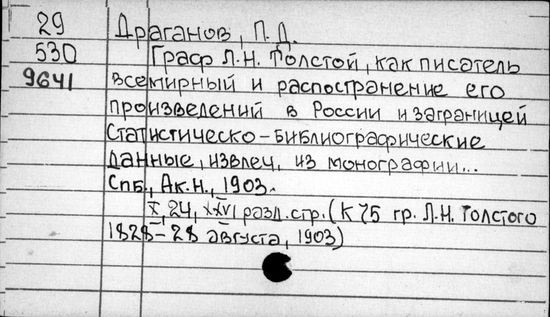 29 Драганов, П. Д.
530 Граф Л.Н. Толстой, как писатель
9641 всемирный и распостранение его
произведений в России и заграницей
Статистическо-библиографические
данные, извлеч. из монографии...
Спб., Ак.Н., 1903.
X, 24, XXVI разд. стр. (К 75 гр. Л.Н. Толстого
1828-28 августа, 1903)